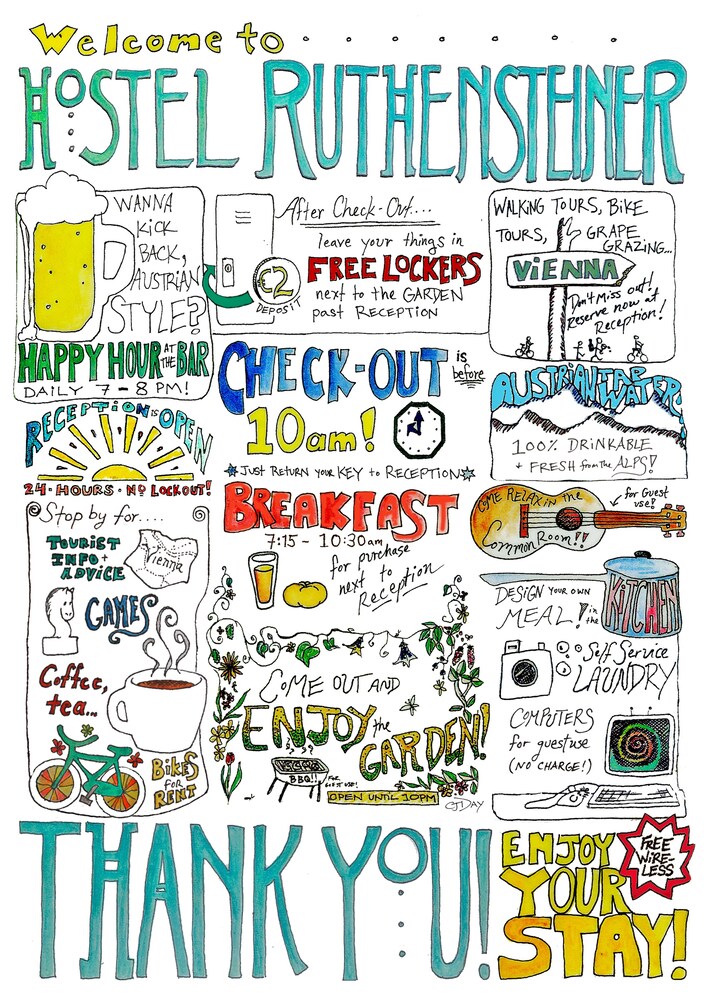 Welcome to
HOSTEL RUTHENSTEINER
WANNA
KICK
BACK,
AUSTRIAN
STYLE?
HAPPY HOUR AT THE BAR
DAILY 7 - 8 PM!
After Check-Out....
leave your things in
FREE LOCKERS
next to the GARDEN
past RECEPTION
€2
DEPOSIT
WALKING TOURS, BIKE
TOURS, GRAPE
GRAZING...
VIENNA
Don't miss out!
Reserve now at
Reception!
CHECK-OUT is
before
10am!
JUST RETURN YOUR KEY to RECEPTION
AUSTRIAN TAP
WATER
100% DRINKABLE
+ FRESH from the ALPS!
RECEPTION IS OPEN
24-HOURS-NO LOCKOUT!
BREAKFAST
7:15 - 10:30am
for purchase
next to
Reception
COME RELAX in the
Common Room!!
for Guest
use!
Stop by for....
TOURIST
INFO +
ADVICE
Vienna
GAMES
Coffee,
tea...
BIKES
for
RENT
DESIGN YOUR OWN
MEAL! in
the
KITCHEN
Self Service
LAUNDRY
COMPUTERS
for guest use
(NO CHARGE!)
COME OUT AND
ENJOY the
GARDEN!
BBQ!!
FOR
GUEST USE!
OPEN UNTIL 10PM
CJDAY
THANK YOU!
ENJOY
YOUR
STAY!
FREE
WIRE-
LESS